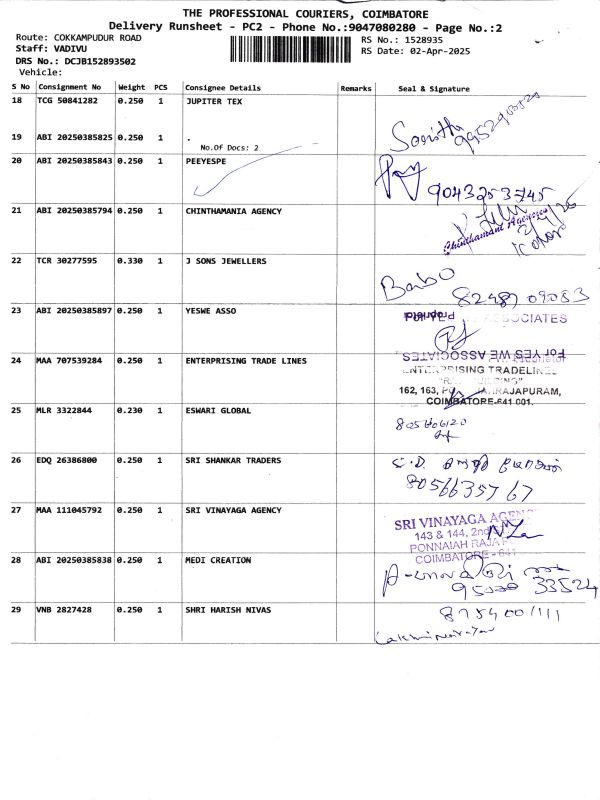 THE PROFESSIONAL COURIERS, COIMBATORE
Delivery Runsheet - PC2 - Phone No.:9047080280 - Page No.:2
Route: COKKAMPUDUR ROAD
RS No.: 1528935
Staff: VADIVU
RS Date: 02-Apr-2025
DRS No.: DCJB152893502
Vehicle:
S No Consignment No Weight PCS Consignee Details Remarks Seal & Signature
18 TCG 50841282 0.250 1 JUPITER TEX
19 ABI 20250385825 0.250 1 .
No.Of Docs: 2
20 ABI 20250385843 0.250 1 PEEYESPE
9043253745
21 ABI 20250385794 0.250 1 CHINTHAMANIA AGENCY
Chinthamani Agencies
22 TCR 30277595 0.330 1 J SONS JEWELLERS
Babo
8248709083
23 ABI 20250385897 0.250 1 YESWE ASSO
For YES WE ASSOCIATES
24 MAA 707539284 0.250 1 ENTERPRISING TRADE LINES
ENTERPRISING TRADELINES
162, 163, RAJAPURAM,
COIMBATORE-641 001.
25 MLR 3322844 0.230 1 ESWARI GLOBAL
26 EDQ 26386800 0.250 1 SRI SHANKAR TRADERS
8056635767
27 MAA 111045792 0.250 1 SRI VINAYAGA AGENCY
SRI VINAYAGA AGENCY
143 & 144, 2nd
PONNAIAH RAJA
COIMBATORE - 641
28 ABI 20250385838 0.250 1 MEDI CREATION
29 VNB 2827428 0.250 1 SHRI HARISH NIVAS
Lakshminarayan